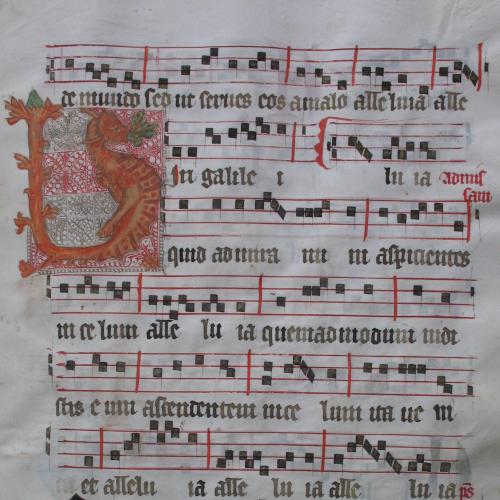 de mundo sed ut serves eos a malo alle luia alle
lu ia admis
sam
Viri galile i
quid admira mi ni aspicientes
in ce lum alle lu ia quemadmodum vidi
stis e um ascendentem in ce lum ita ve ni
et allelu ia alle lu ia alle lu ia ps